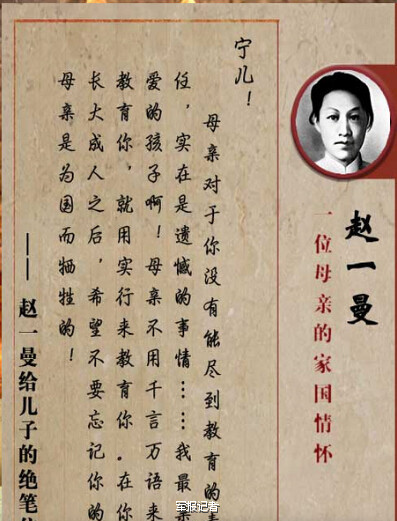 赵一曼
一位母亲的家国情怀
宁儿！
母亲对于你没有能尽到教育的责
任，实在是遗憾的事情……我最亲
爱的孩子啊！母亲不用千言万语来
教育你，就用实行来教育你。在你
长大成人之后，希望不要忘记你的
母亲是为国而牺牲的！
——赵一曼给儿子的绝笔信
军报记者